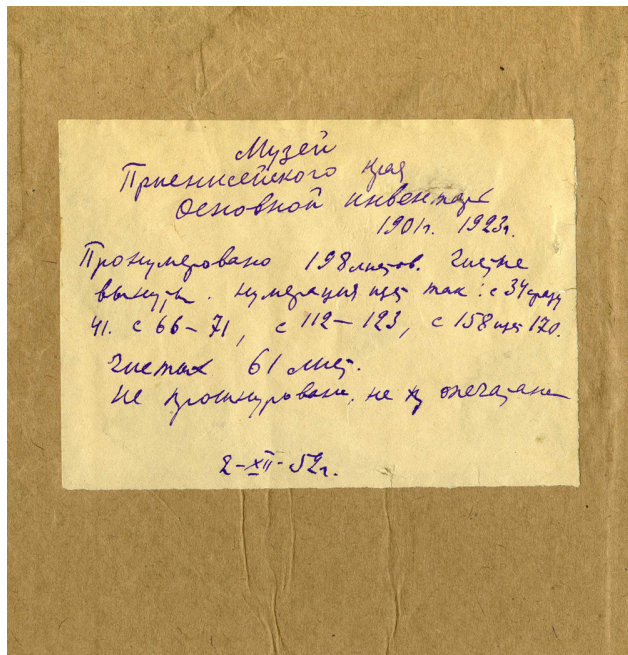 Музей
Приенисейского края
Основной инвентарь
1901г. 1923г.
Пронумеровано 198 листов. Чистые
вынуты. Нумерация идет так: с 34 сразу
41. с 66-71, с 112-123, с 158 идет 170.
Чистых 61 лист.
Не прошнурована, не опечатана
2-XII-52г.